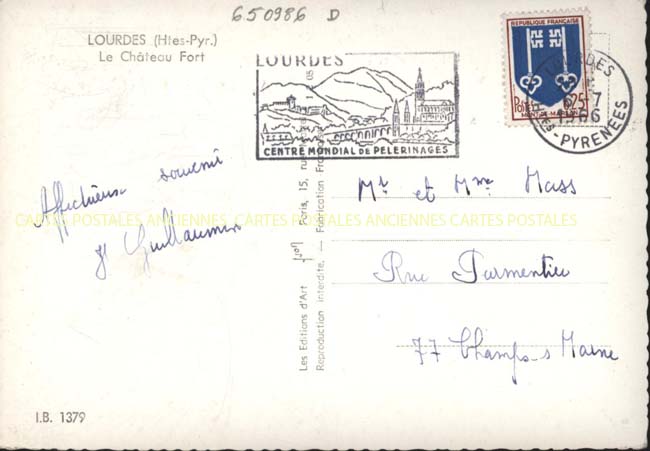 650986 D
LOURDES (Htes-Pyr.)
Le Château Fort
LOURDES
CENTRE MONDIAL DE PELERINAGES
REPUBLIQUE FRANÇAISE
Postes
0,25
MONT-DE-MARSAN
LOURDES
1966
PYRENEES
Affectueux souvenir
Guillaumin
Mr et Mme Mass
Rue Parmentier
77 Champs-s Marne
CARTES POSTALES ANCIENNES CARTES POSTALES ANCIENNES CARTES POSTALES
Les Editions d'Art Yvon Paris, 15, rue
Reproduction interdite. — Fabrication Fran
I.B. 1379